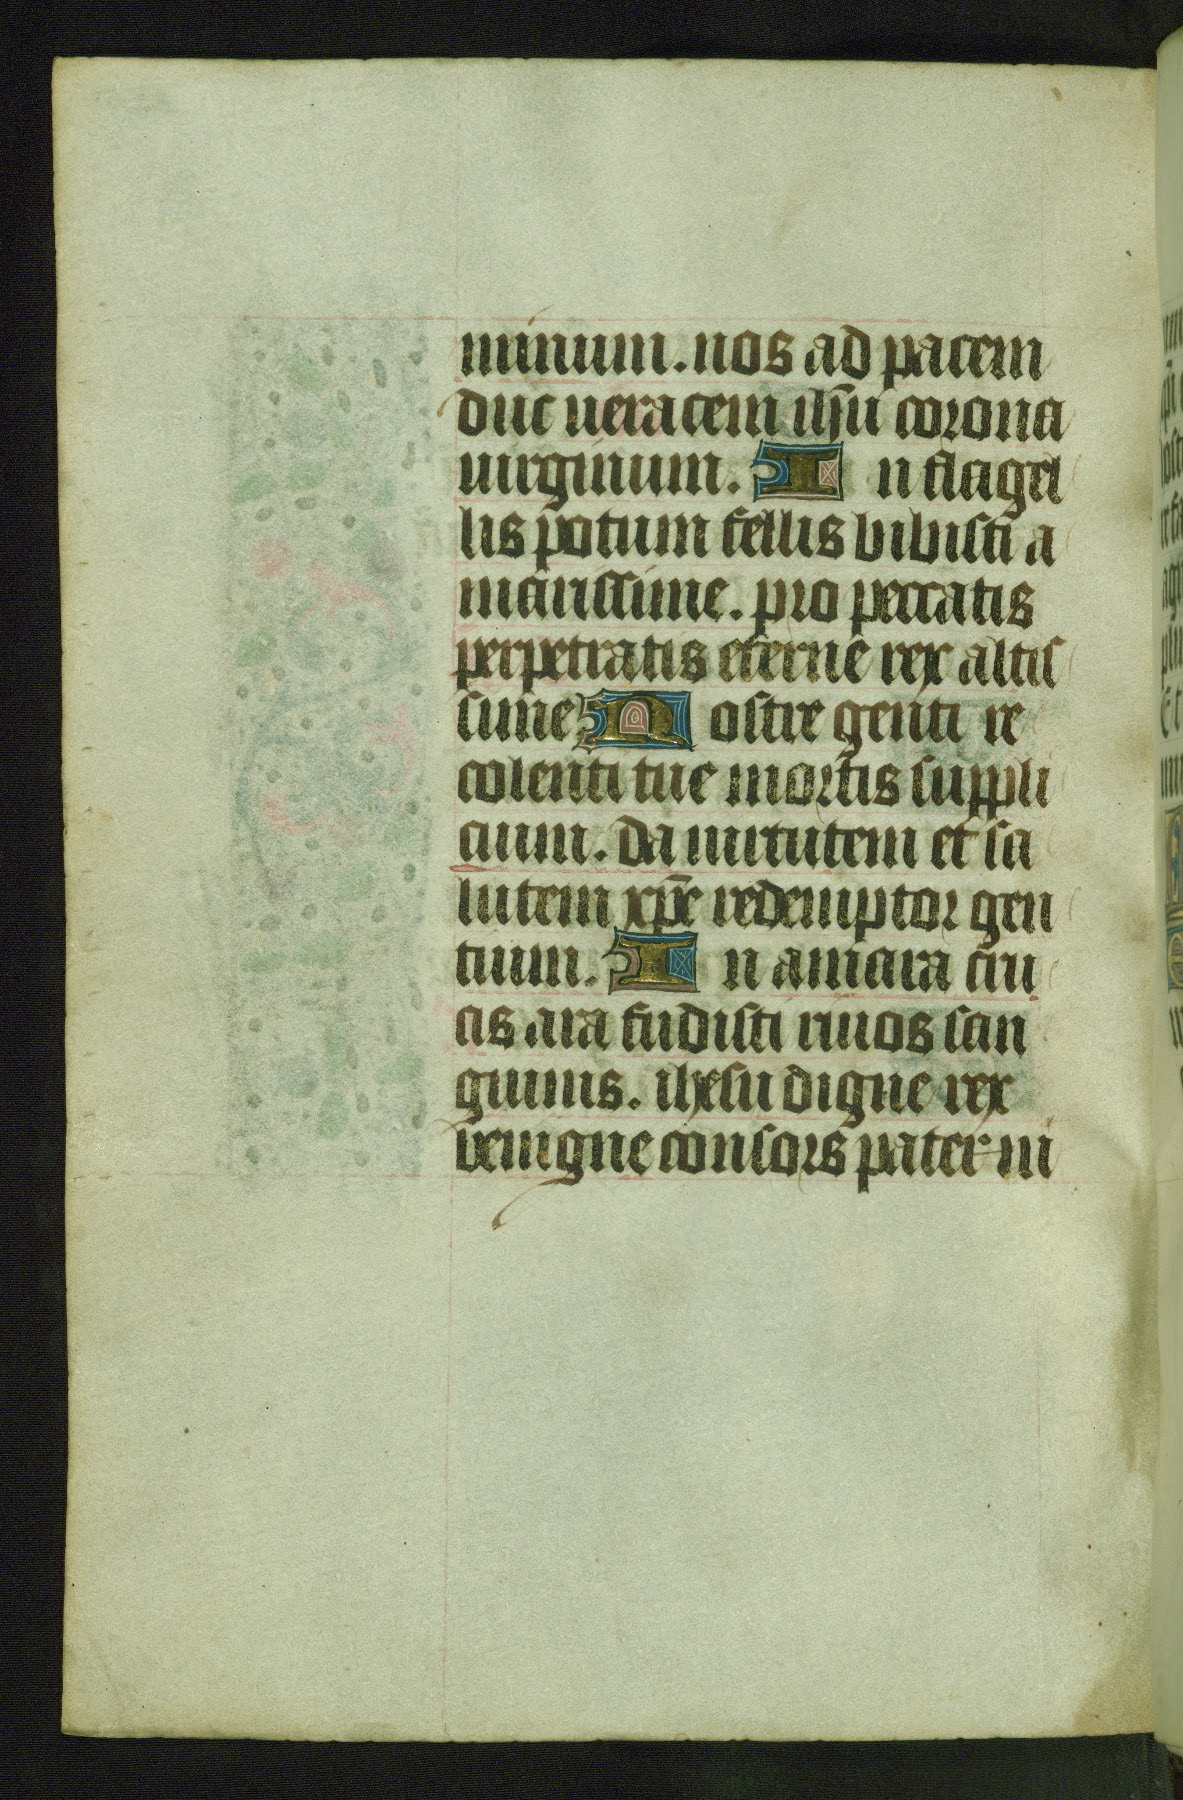 minum. nos ad pacem
duc ueracem ihsu corona
uirginum. In flagel
lis potum fellis bibisti a
marissime. pro peccatis
perpetratis eterne rex altis
sime Nostre genti re
colenti tue mortis suppli
cium. da uirtutem et sa
lutem xpe redemptor gen
tium. In amara cru
cis ara fudisti riuos san
guinis. ihesu digne rex
benigne consors paterni